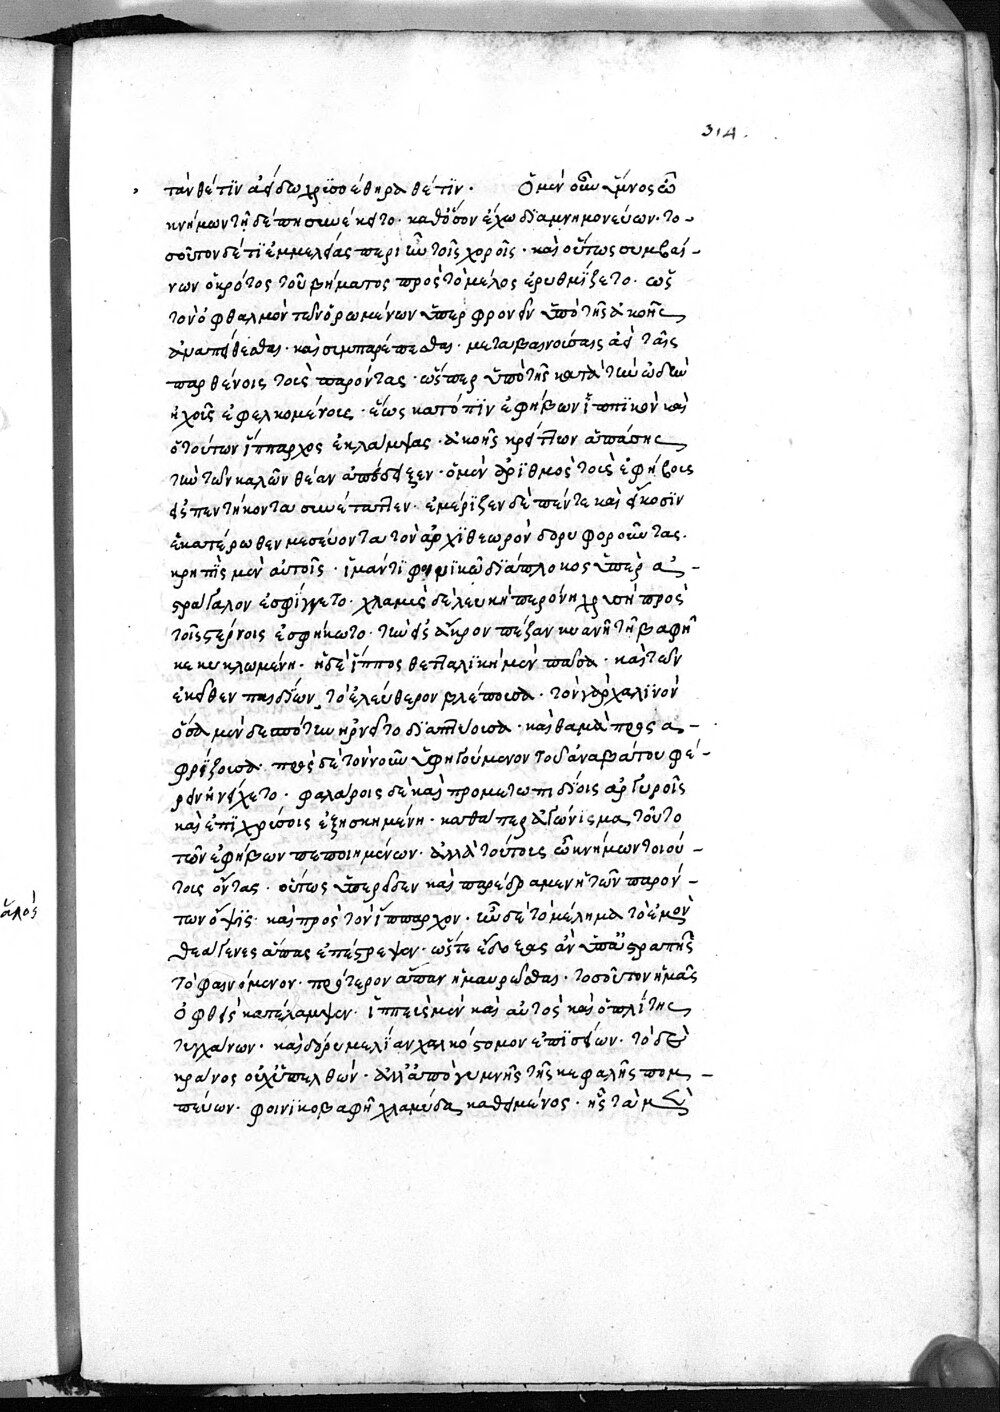 314.
τὰν θέτιν ἀείδω χρυσοέθηρα θέτιν. Ὁ μὲν οὖν ὕμνος ὦ
κνήμων τῇδέ πη συνέκειτο· καθ' ὅσον ἔχω διαμνημονεύων· το-
σοῦτον δέ τι ἐμμελείας περιῶν τοῖς χοροῖς· καὶ οὕτως συμβαί-
νων ὁ κρότος τοῦ βήματος πρὸς τὸ μέλος ἐρυθμίζετο· ὡς
τὸν ὀφθαλμὸν τῶν ὁρωμένων ὑπερφρονεῖν ὑπὸ τῆς ἀκοῆς
ἀναπείθεσθαι· καὶ συμπαρέπεσθαι· μεταβαινούσαις ἀεὶ ταῖς
παρθένοις τοὺς παρόντας· ὥσπερ ὑπὸ τῆς κατὰ τὴν ὠδὴν
ἠχοῦς ἐφελκομένους· ἕως κατόπιν ἐφήβων ἱππικὸν καὶ
ὁ τούτων ἵππαρχος ἐκλάμψας· ἀκοῆς κρείττων ἁπάσης
τὴν τῶν καλῶν θέαν ἀπέδειξεν· ὁ μὲν ἀριθμὸς τοὺς ἐφήβους
εἰς πεντήκοντα συνέταττεν· ἐμέριζεν δὲ πέντε καὶ εἴκοσιν
ἑκατέρωθεν μεσεύοντα τὸν ἀρχιθεωρὸν δορυφοροῦντας.
κρηπὶς μὲν αὐτοῖς· ἱμάντι φοινικῷ διάπλοκος ὑπὲρ ἀ-
στραγάλον ἐσφίγγετο· χλαμὺς δὲ λευκὴ περόνη χρυσῆ πρὸς
τοῖς στέρνοις ἐσφήκωτο· τὴν εἰς ἄκρον πέζαν κυανῆ τῇ βαφῇ
κεκυκλωμένη· ἡ δὲ ἵππος θετταλικὴ μὲν πᾶσα· καὶ τῶν
ἐκεῖθεν παιδίων τὸ ἐλεύθερον βλέπουσα· τὸν γὰρ χαλινὸν
ὅσα μὲν δεσπότην ἠρνεῖτο διαπτύουσα· καὶ θαμὰ προς α-
φρίζουσα· πρὸς δὲ τὸν νοῦν ὑφηγούμενον τοῦ ἀναβάτου φέ-
ρειν ἠνείχετο· φαλάροις δὲ καὶ προμετωπιδίοις ἀργυροῖς
καὶ ἐπιχρύσοις ἐξησκημένη· καθάπερ ἀγώνισμα τοῦτο
τῶν ἐφήβων πεποιημένων· ἀλλὰ τούτους ὦ κνήμων τοιού-
τους ὄντας· οὕτως ὑπερεῖδεν καὶ παρέδραμεν ἡ τῶν παρόν-
των ὄψις· καὶ πρὸς τὸν ἵππαρχον· ἦν δὲ τὸ μέλημα τὸ ἐμὸν
θεαγένες ἅπας ἐπέστρεψεν· ὥστε ἔδοξας ἂν ὑπ' ἀστραπῆς
τὸ φαινόμενον· πρότερον ἅπαν ἠμαυρῶσθαι· τοσοῦτον ἡμᾶς
ὀφθεὶς κατέλαμψεν· ἱππεὺς μὲν καὶ αὐτὸς καὶ ὁπλίτης
τυγχάνων· καὶ δόρυ μελίαν χαλκόστομον ἐπισείων· τὸ δὲ
κράνος οὐχ ὑπελθὼν· ἀλλ' ἀπὸ γυμνῆς τῆς κεφαλῆς πομ-
πεύων· φοινικοβαφῆ χλαμύδα καθειμένος· ἧς τὰ μὲν